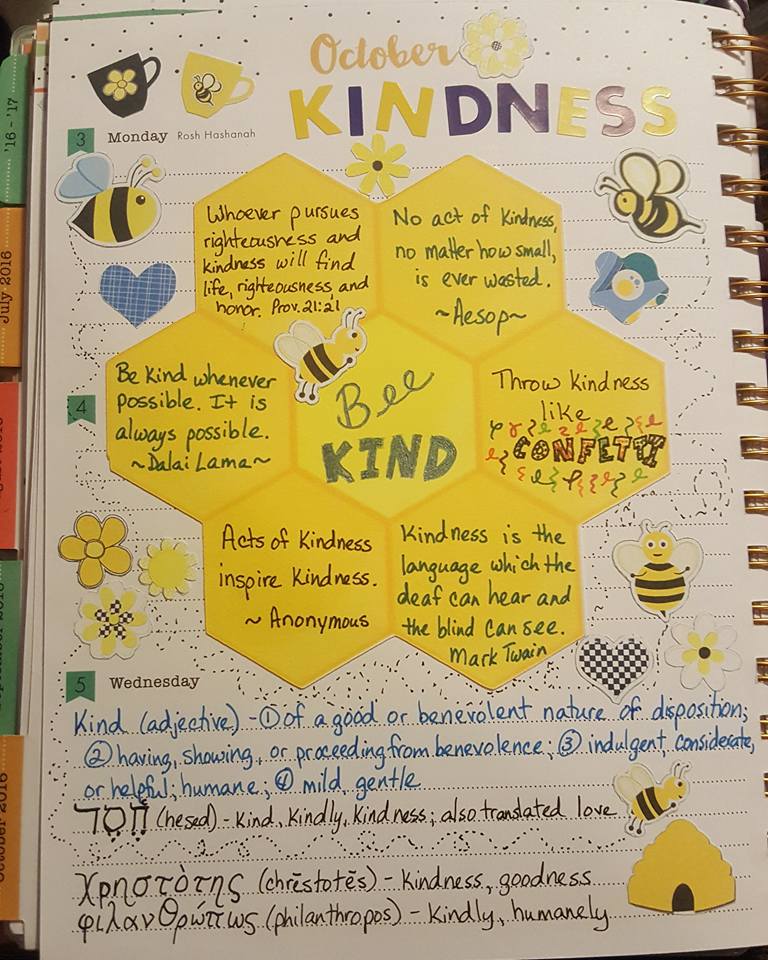 October
KINDNESS
3 Monday Rosh Hashanah
Whoever pursues
righteousness and
kindness will find
life, righteousness, and
honor. Prov. 21:21
No act of kindness,
no matter how small,
is ever wasted.
~Aesop~
Be kind whenever
possible. It is
always possible.
~Dalai Lama~
Bee
KIND
Throw kindness
like
CONFETTI
4
Acts of Kindness
inspire kindness.
~ Anonymous
Kindness is the
language which the
deaf can hear and
the blind can see.
Mark Twain
5 Wednesday
Kind (adjective) - ① of a good or benevolent nature of disposition;
② having, showing, or proceeding from benevolence; ③ indulgent, considerate,
or helpful; humane; ④ mild, gentle
חֶסֶד (hesed) - Kind, Kindly, Kindness; also translated love
χρηστὸτης (chrēstotēs) - Kindness, goodness
φιλανθρώπως (philanthropos) - Kindly, humanely
'16 - '17
July 2016
October 2016